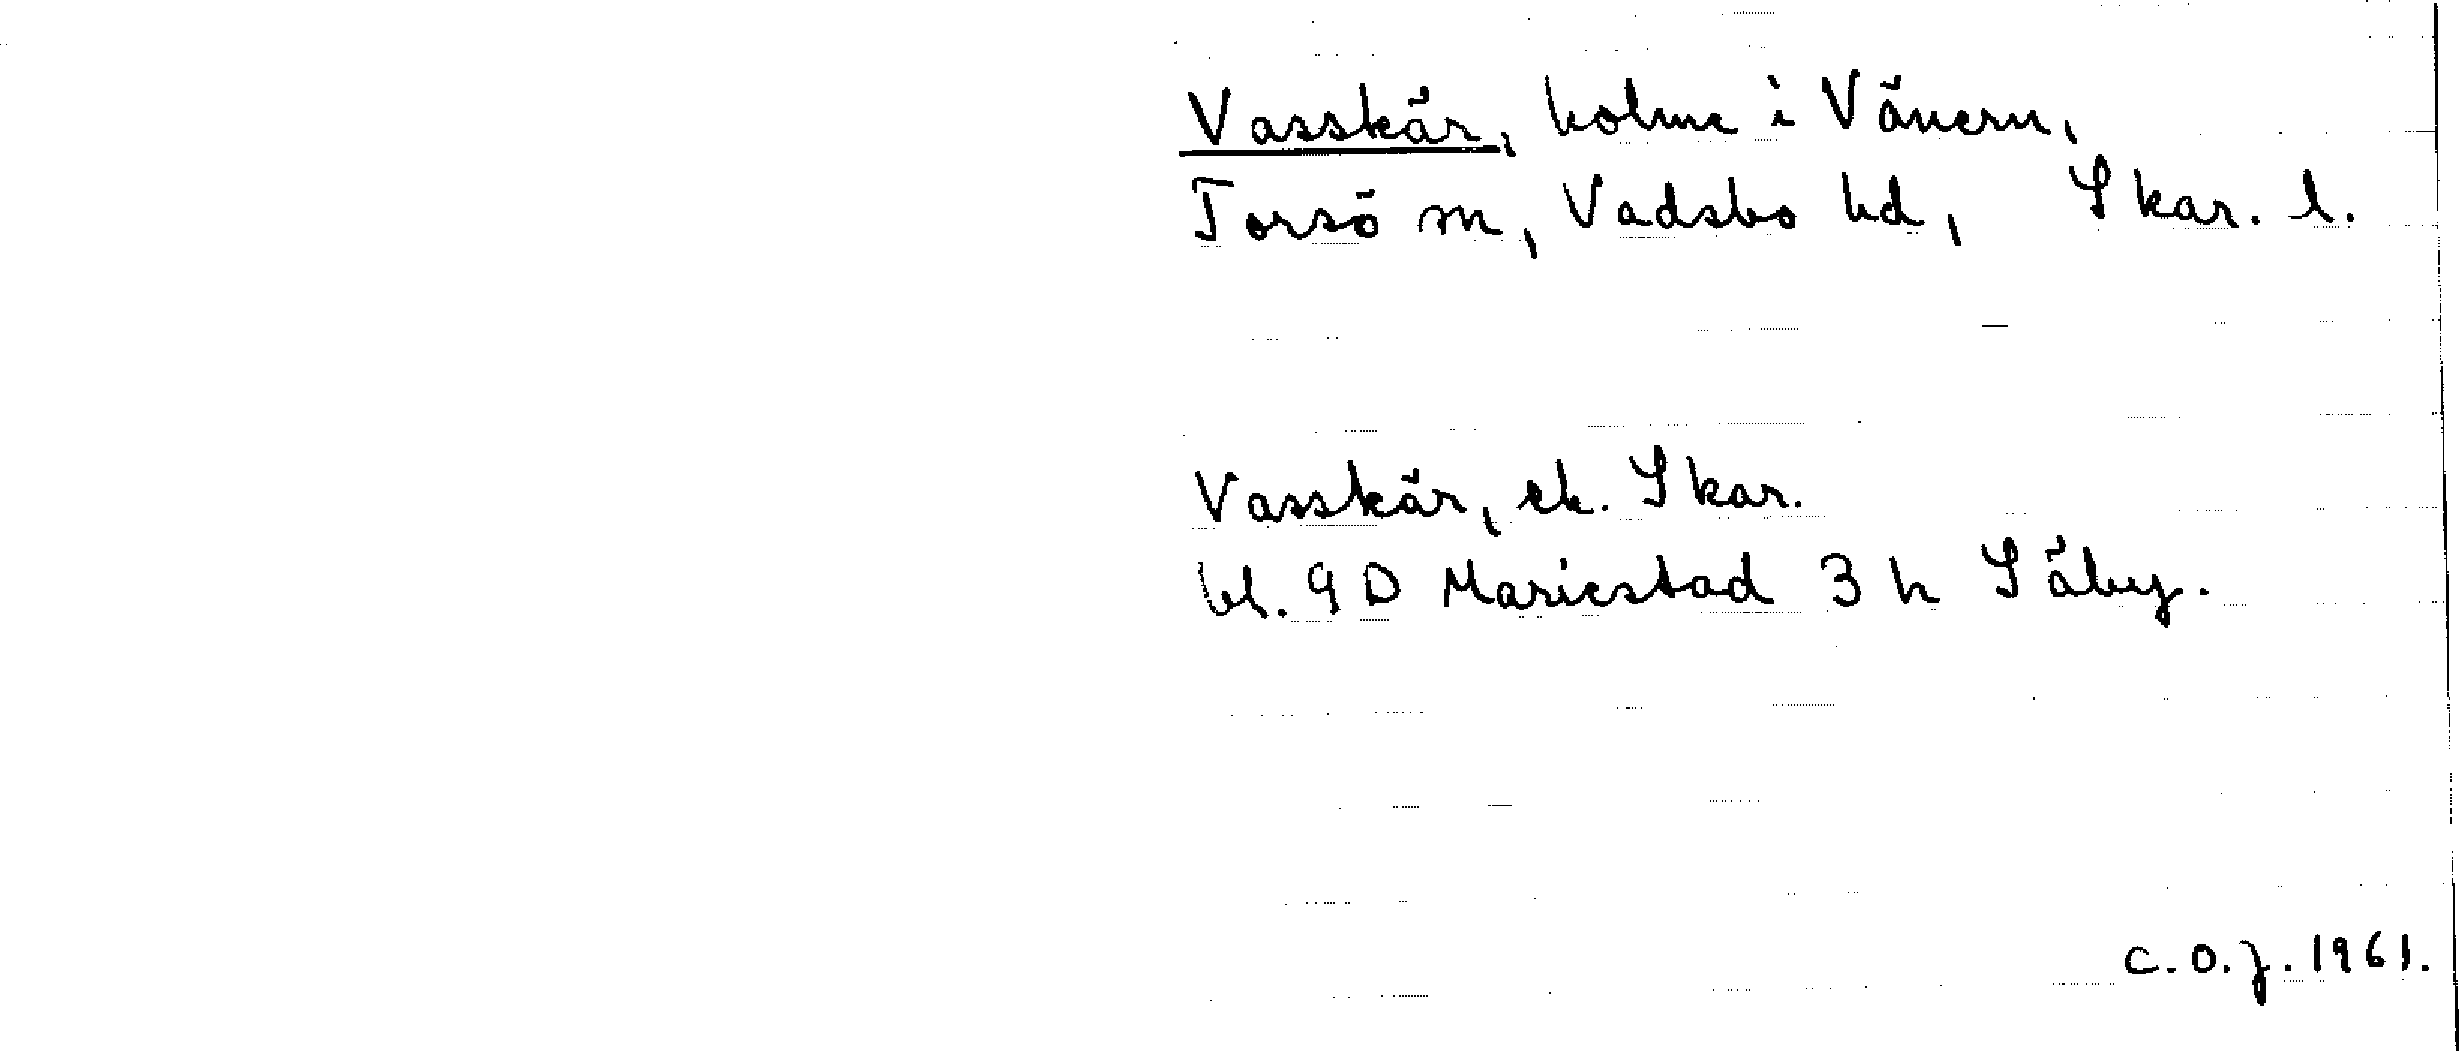 Vasskär, holme i Vänern,
Torsö sn, Vadsbo hd, Skar. l.
Vasskär, ek. Skar.
bl. 9 D Mariestad 3 h Säby.
C.O.J. 1961.